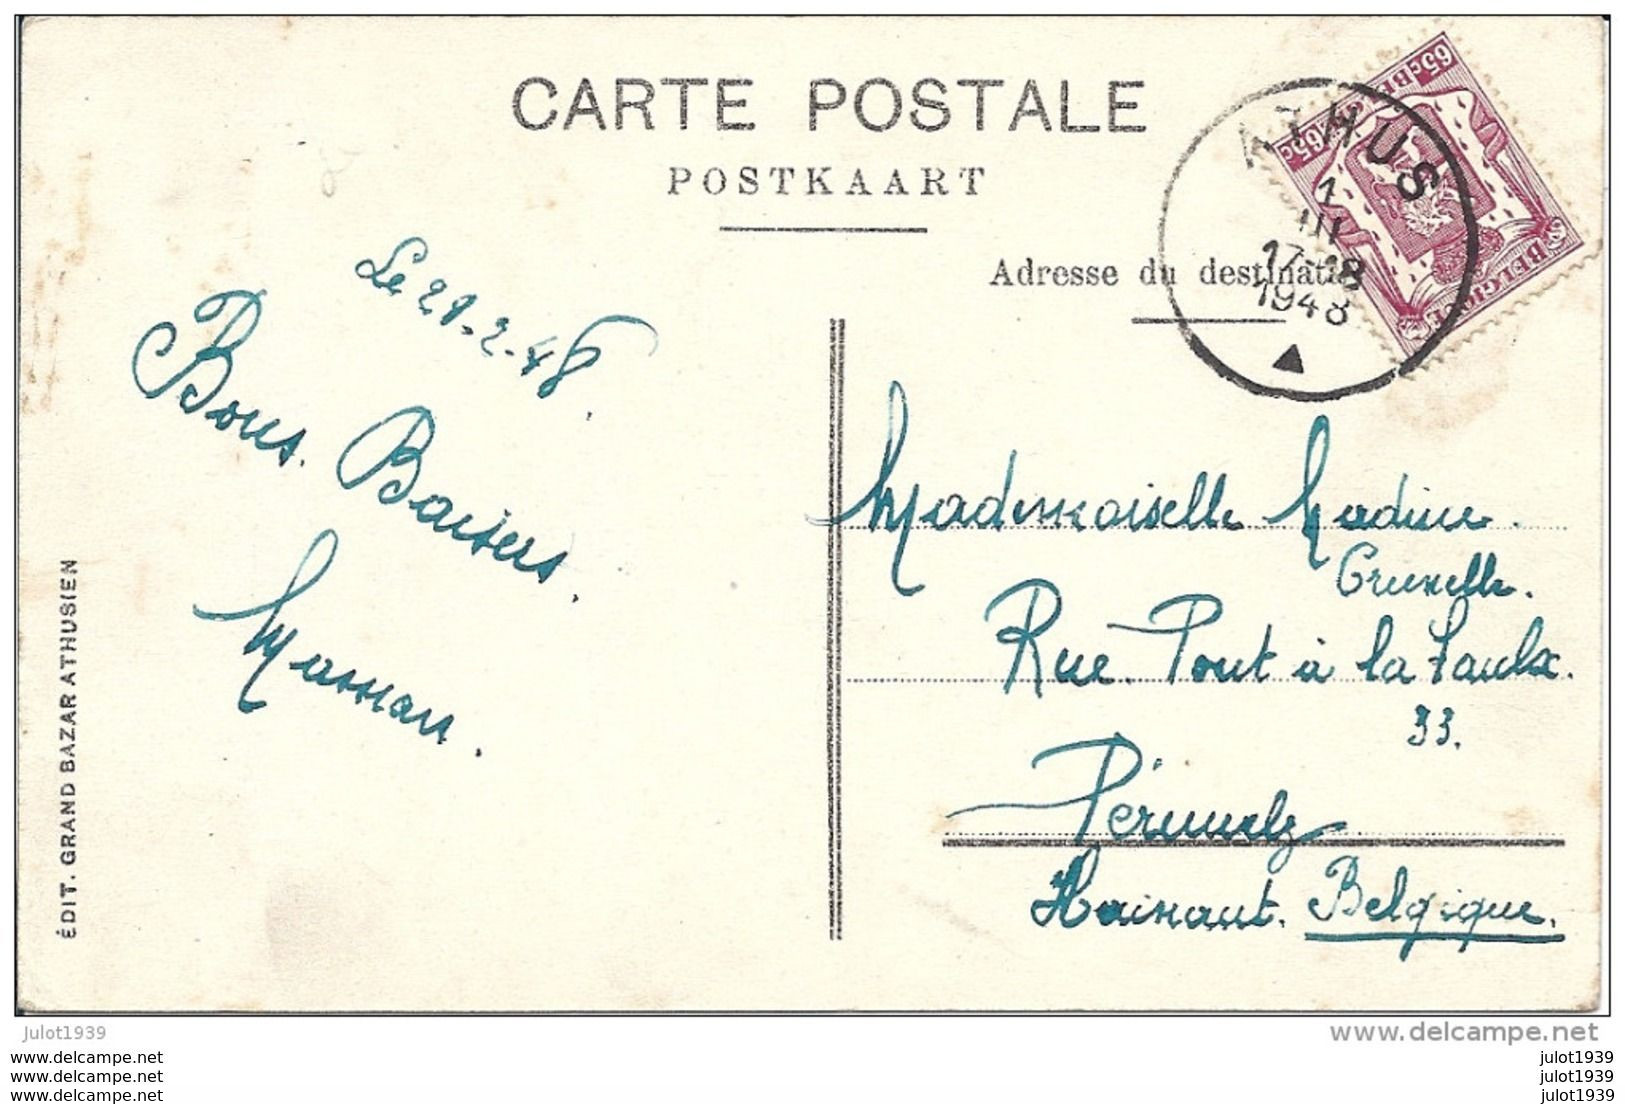 CARTE POSTALE
POSTKAART
65c BELGIQUE
65c BELGIE
ATHUS
1
III
17-18
1948
Adresse du destinatai
Le 29-2-48.
Bons Baisers.
Maman.
Mademoiselle Nadine
Cruxelle.
Rue Pont à la Faulx.
33.
Péruwelz
Hainaut. Belgique.
ÉDIT. GRAND BAZAR ATHUSIEN
julot1939
delcampe.net
www.delcampe.net
www.delcampe.net
www.delcampe.net
julot1939
julot1939
julot1939